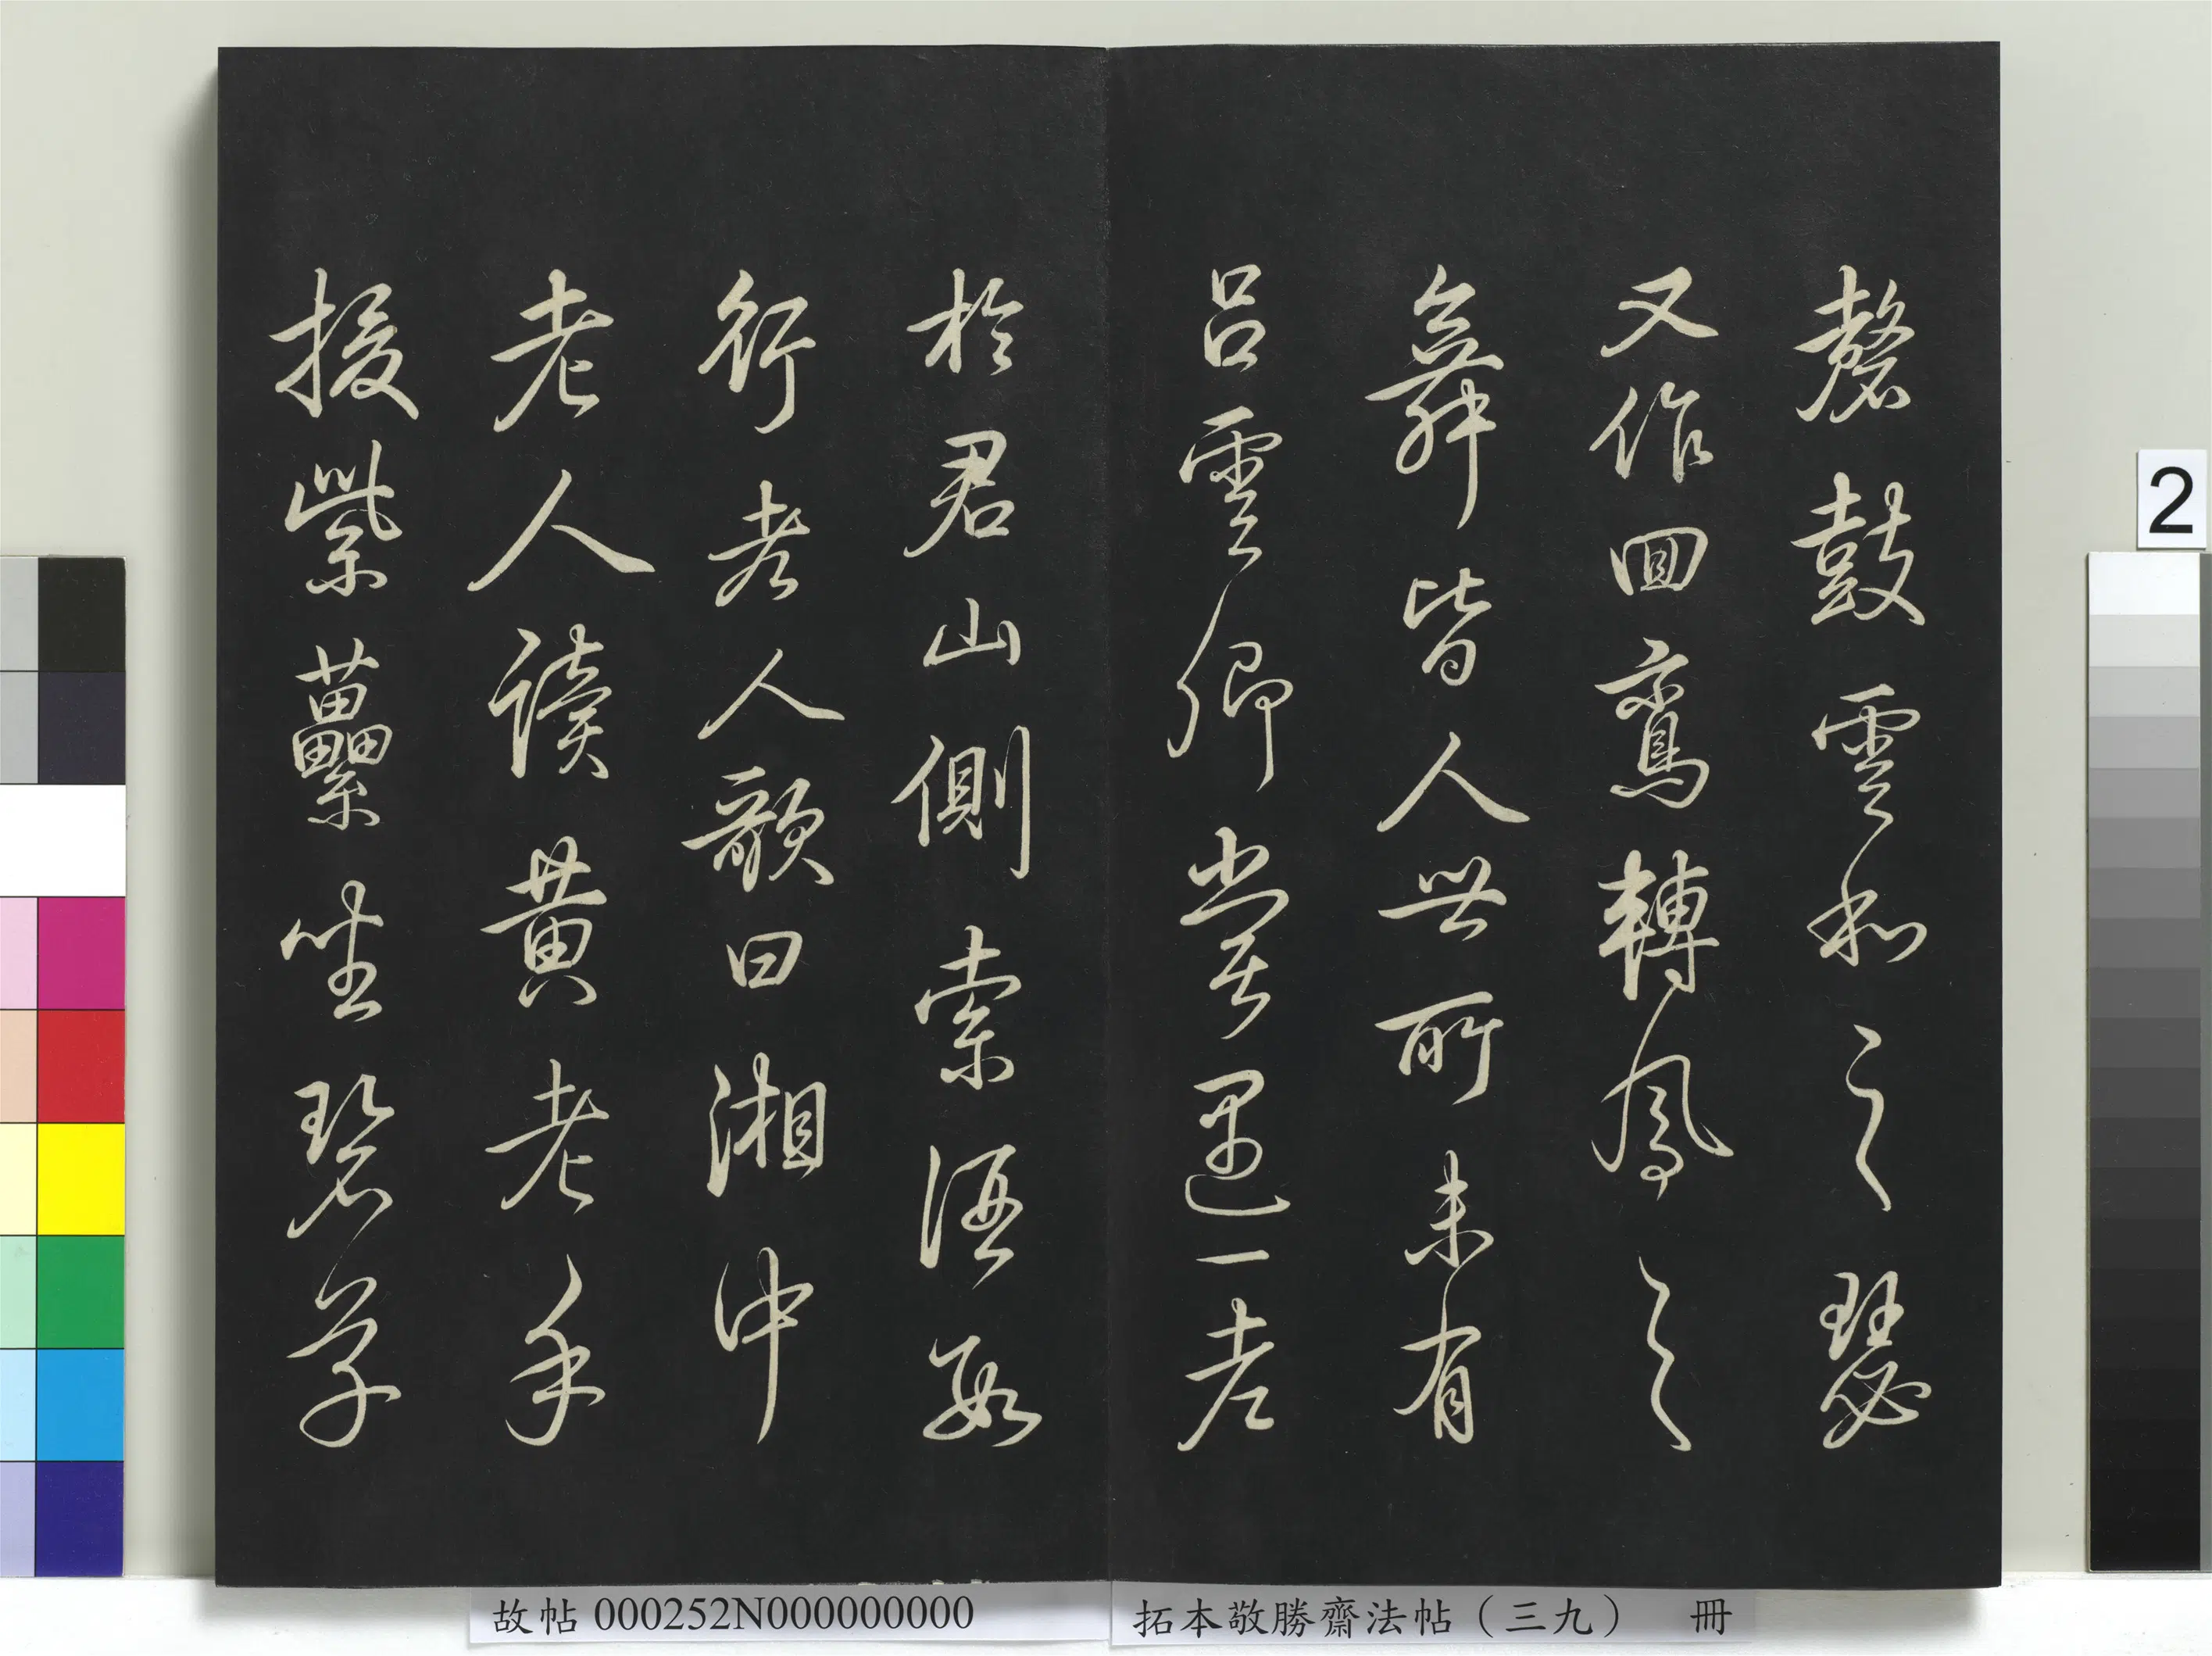 磬鼓雲和之瑟
又作回鸞轉鳳之
舞皆人世所未有
呂雲卿嘗遇一老
於君山側索酒數
行老人歌曰湘中
老人讀黃老手
援紫藟坐碧草
2
故帖 000252N000000000
拓本敬勝齋法帖（三九） 冊